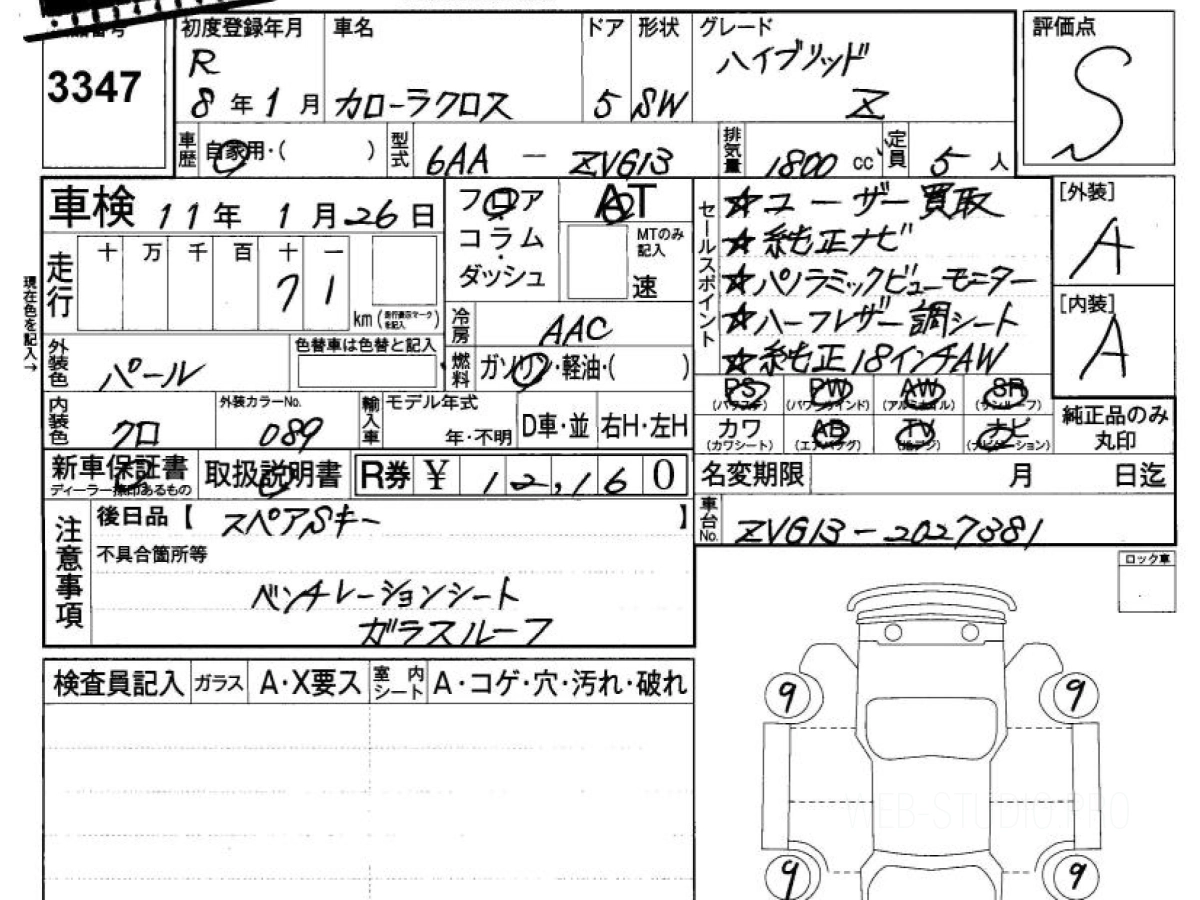 3347
初度登録年月 車名 ドア 形状 グレード
R
8年1月 カローラクロス 5 SW ハイブリッド
Z
評価点
S
車歴 自家用・( ) 型式 6AA - ZVG13 排気量 1800 cc 定員 5人
車検 11年 1月26日
フロア AT
コラム MTのみ記入
ダッシュ 速
セールスポイント
☆ユーザー買取
☆純正ナビ
☆パノラミックビューモニター
☆ハーフレザー調シート
☆純正18インチAW
[外装]
A
[内装]
A
現在色を記入→
走行 十 万 千 百 十 一
71
km(走行表示マークを記入)
冷房 AAC
外装色 パール 色替車は色替と記入 燃料 ガソリン・軽油・( )
内装色 クロ 外装カラーNo. 089 輸入車 モデル年式 年・不明 D車・並 右H・左H
PS (パワステ) PW (パワーウインド) AW (アルミホイル) SR (サンルーフ)
カワ (カワシート) AB (エアバッグ) TV (地デジ) ナビ (ナビゲーション)
純正品のみ
丸印
新車保証書 ディーラー捺印あるもの 取扱説明書 R券 ¥ 12,160
名変期限 月 日迄
車台No. ZVG13-2027381
注意事項
後日品【 スペアSキー 】
不具合箇所等
ベンチレーションシート
ガラスルーフ
ロック車
検査員記入 ガラス A・X要ス 室内シート A・コゲ・穴・汚れ・破れ
9 9
WEB-STUDIO.PRO
9 9